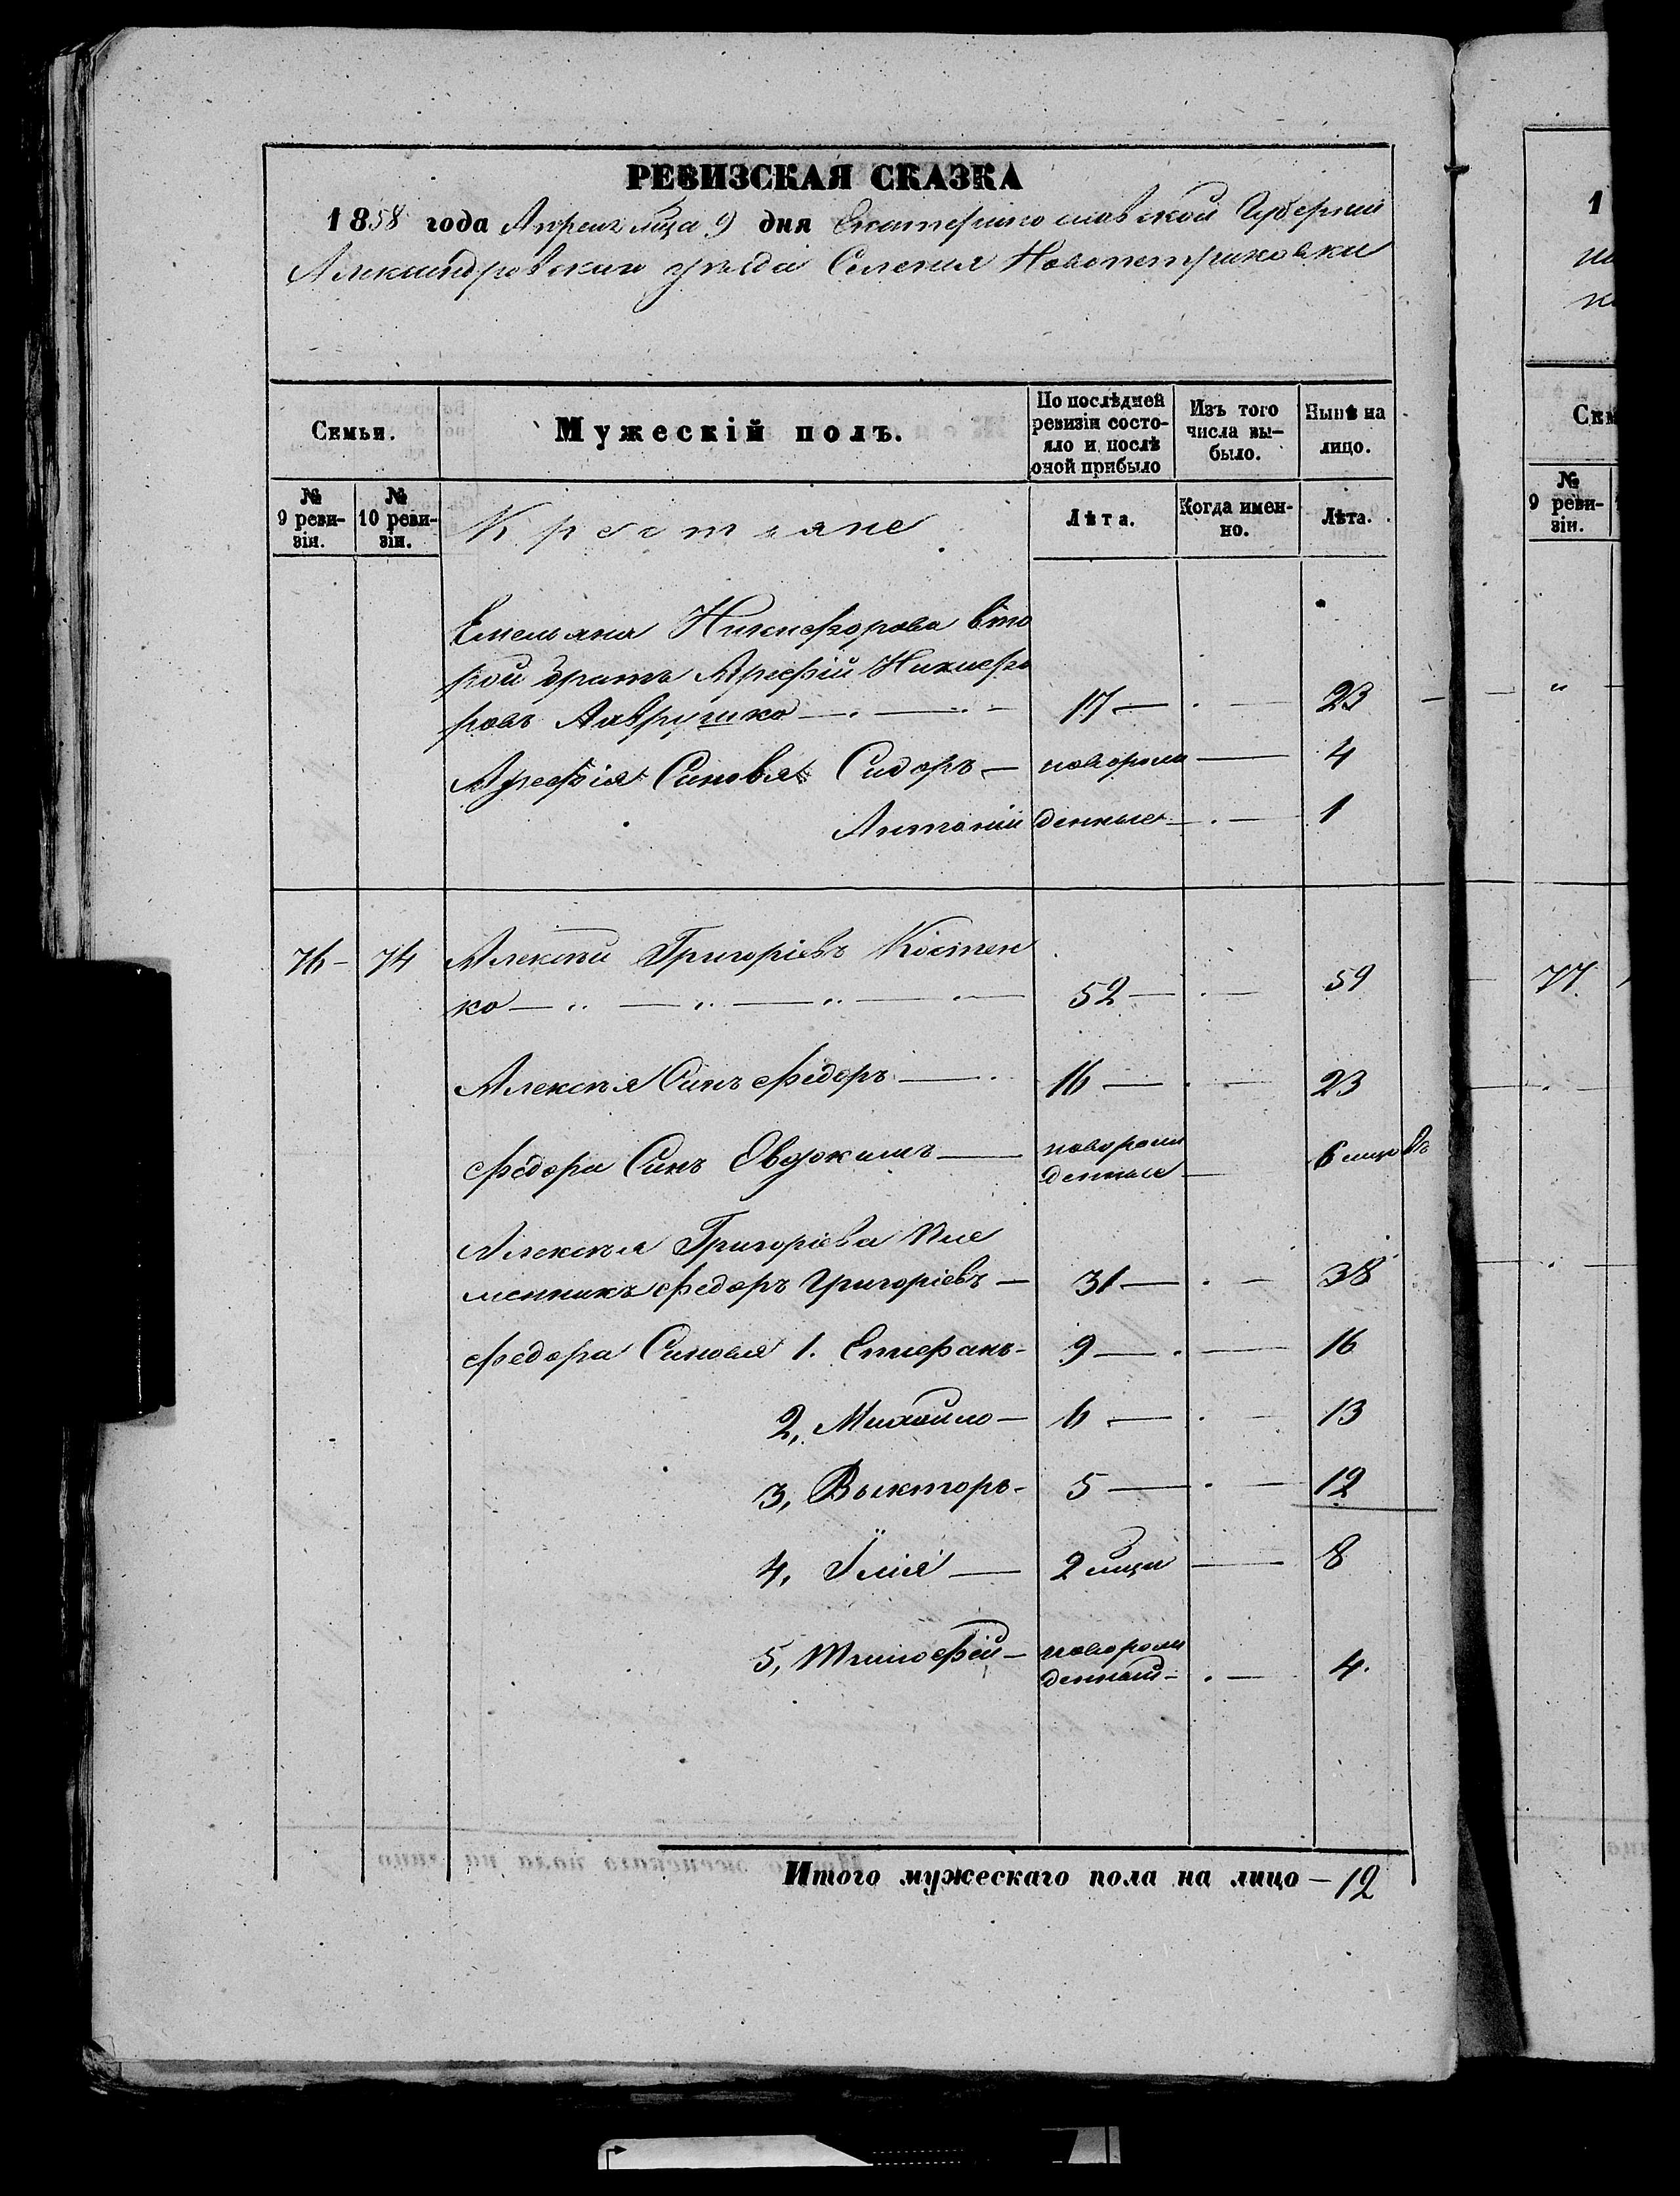 РЕВИЗСКАЯ СКАЗКА
1858 года Апреля мца 9 дня Екатеринославской Губернии
Александровского уезда Селения Новопетриковки
Семьи.
Мужескій полъ.
По послѣдней ревизіи состояло и послѣ оной прибыло
Изъ того числа выбыло.
Нынѣ на лицо.
№ 9 ревизіи.
№ 10 ревизіи.
Крестьяне
Лѣта.
Когда именно.
Лѣта.
Емельяна Никифорова вто
рой братъ Арефій Никифо
ровъ Лаврушко — 17 — 23
Арефія Синовья Сидоръ — новорож — 4
Антоній денные — 1
76 — 74 Алексѣй Григоріевъ Костен
ко — 52 — 59
Алексѣя Синъ Федоръ — 16 — 23
Федора Синъ Евдокимъ — новорож
денные — 6 мцовъ
Алексѣя Григоріева Пле
менникъ Федоръ Григоріевъ — 31 — 38
Федора Синовья 1. Стефанъ — 9 — 16
2, Михайло — 6 — 13
3, Выкторъ — 5 — 12
4, Їлія — 2 мца — 8
5, Тимофей — новорож
денный — 4
Итого мужескаго пола на лицо — 12
1
Сем
№ 9 ревизіи.
77